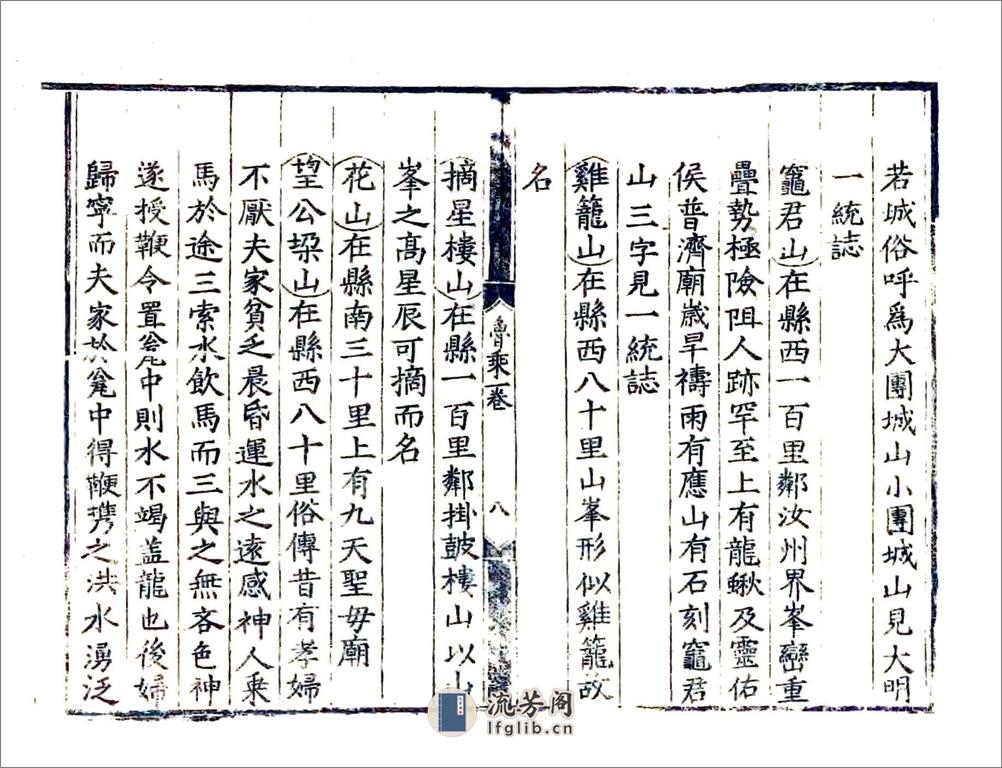 若城俗呼爲大團城山小團城山見大明
一統誌
竈君山在縣西一百里鄰汝州界峯巒重
疊勢極險阻人跡罕至上有龍湫及靈佑
侯普濟廟歲旱禱雨有應山有石刻竈君
山三字見一統誌
雞籠山在縣西八十里山峯形似雞籠故
名
魯乘一卷
八
摘星樓山在縣一百里鄰掛鼓樓山以山
峯之高星辰可摘而名
花山在縣南三十里上有九天聖母廟
望公垜山在縣西八十里俗傳昔有孝婦
不厭夫家貧乏晨昏運水之遠感神人乘
馬於途三索水飲馬而三與之無吝色神
遂授鞭令置瓮中則水不竭盖龍也後婦
歸寧而夫家於瓮中得鞭携之洪水湧泛
流芳阁
lfglib.cn